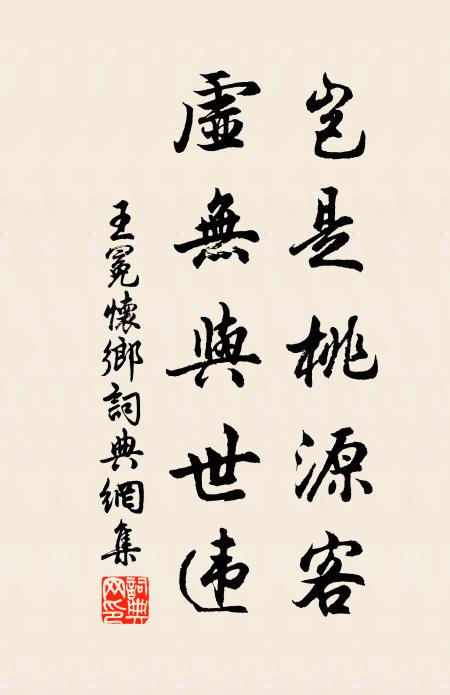 豈是桃源客
虛無與世违
王冕懷鄉詞典網集
詞典网印